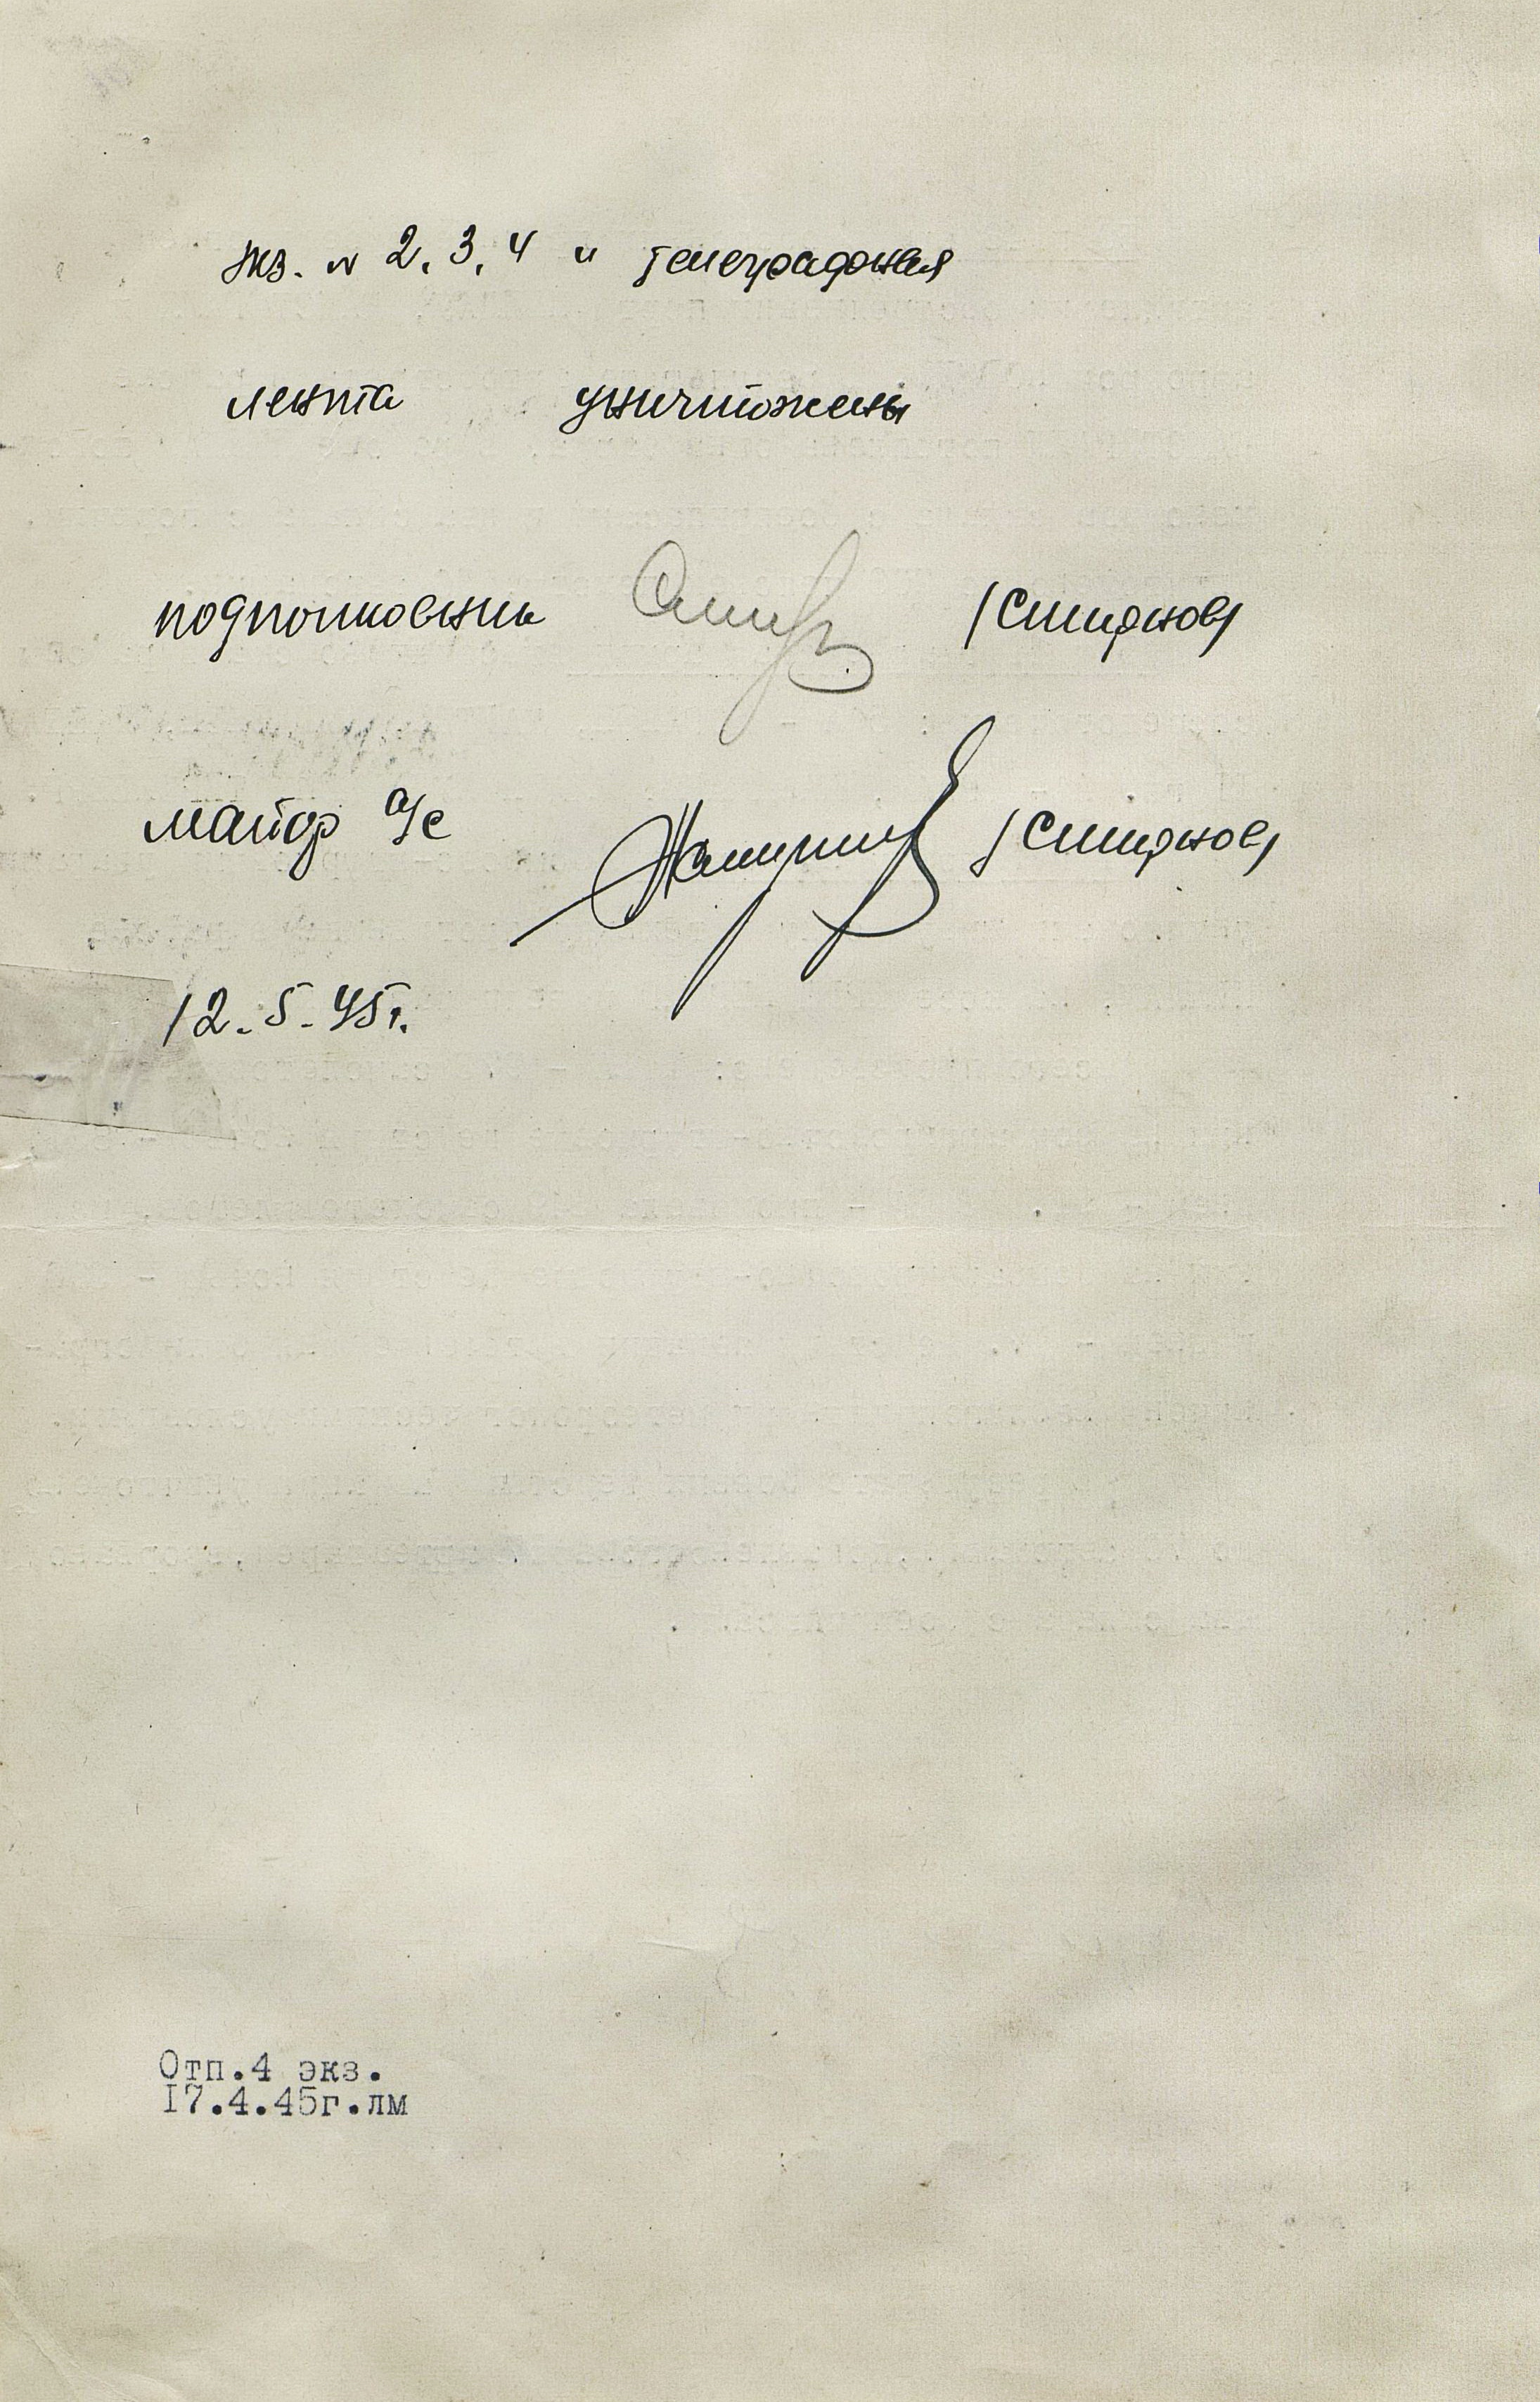 экз. № 2, 3, 4 и телеграфная
лента уничтожены
подполковник /Смирнов/
майор а/с /Смирнов/
12.5.45г.
Отп.4 экз.
I7.4.45г.лм